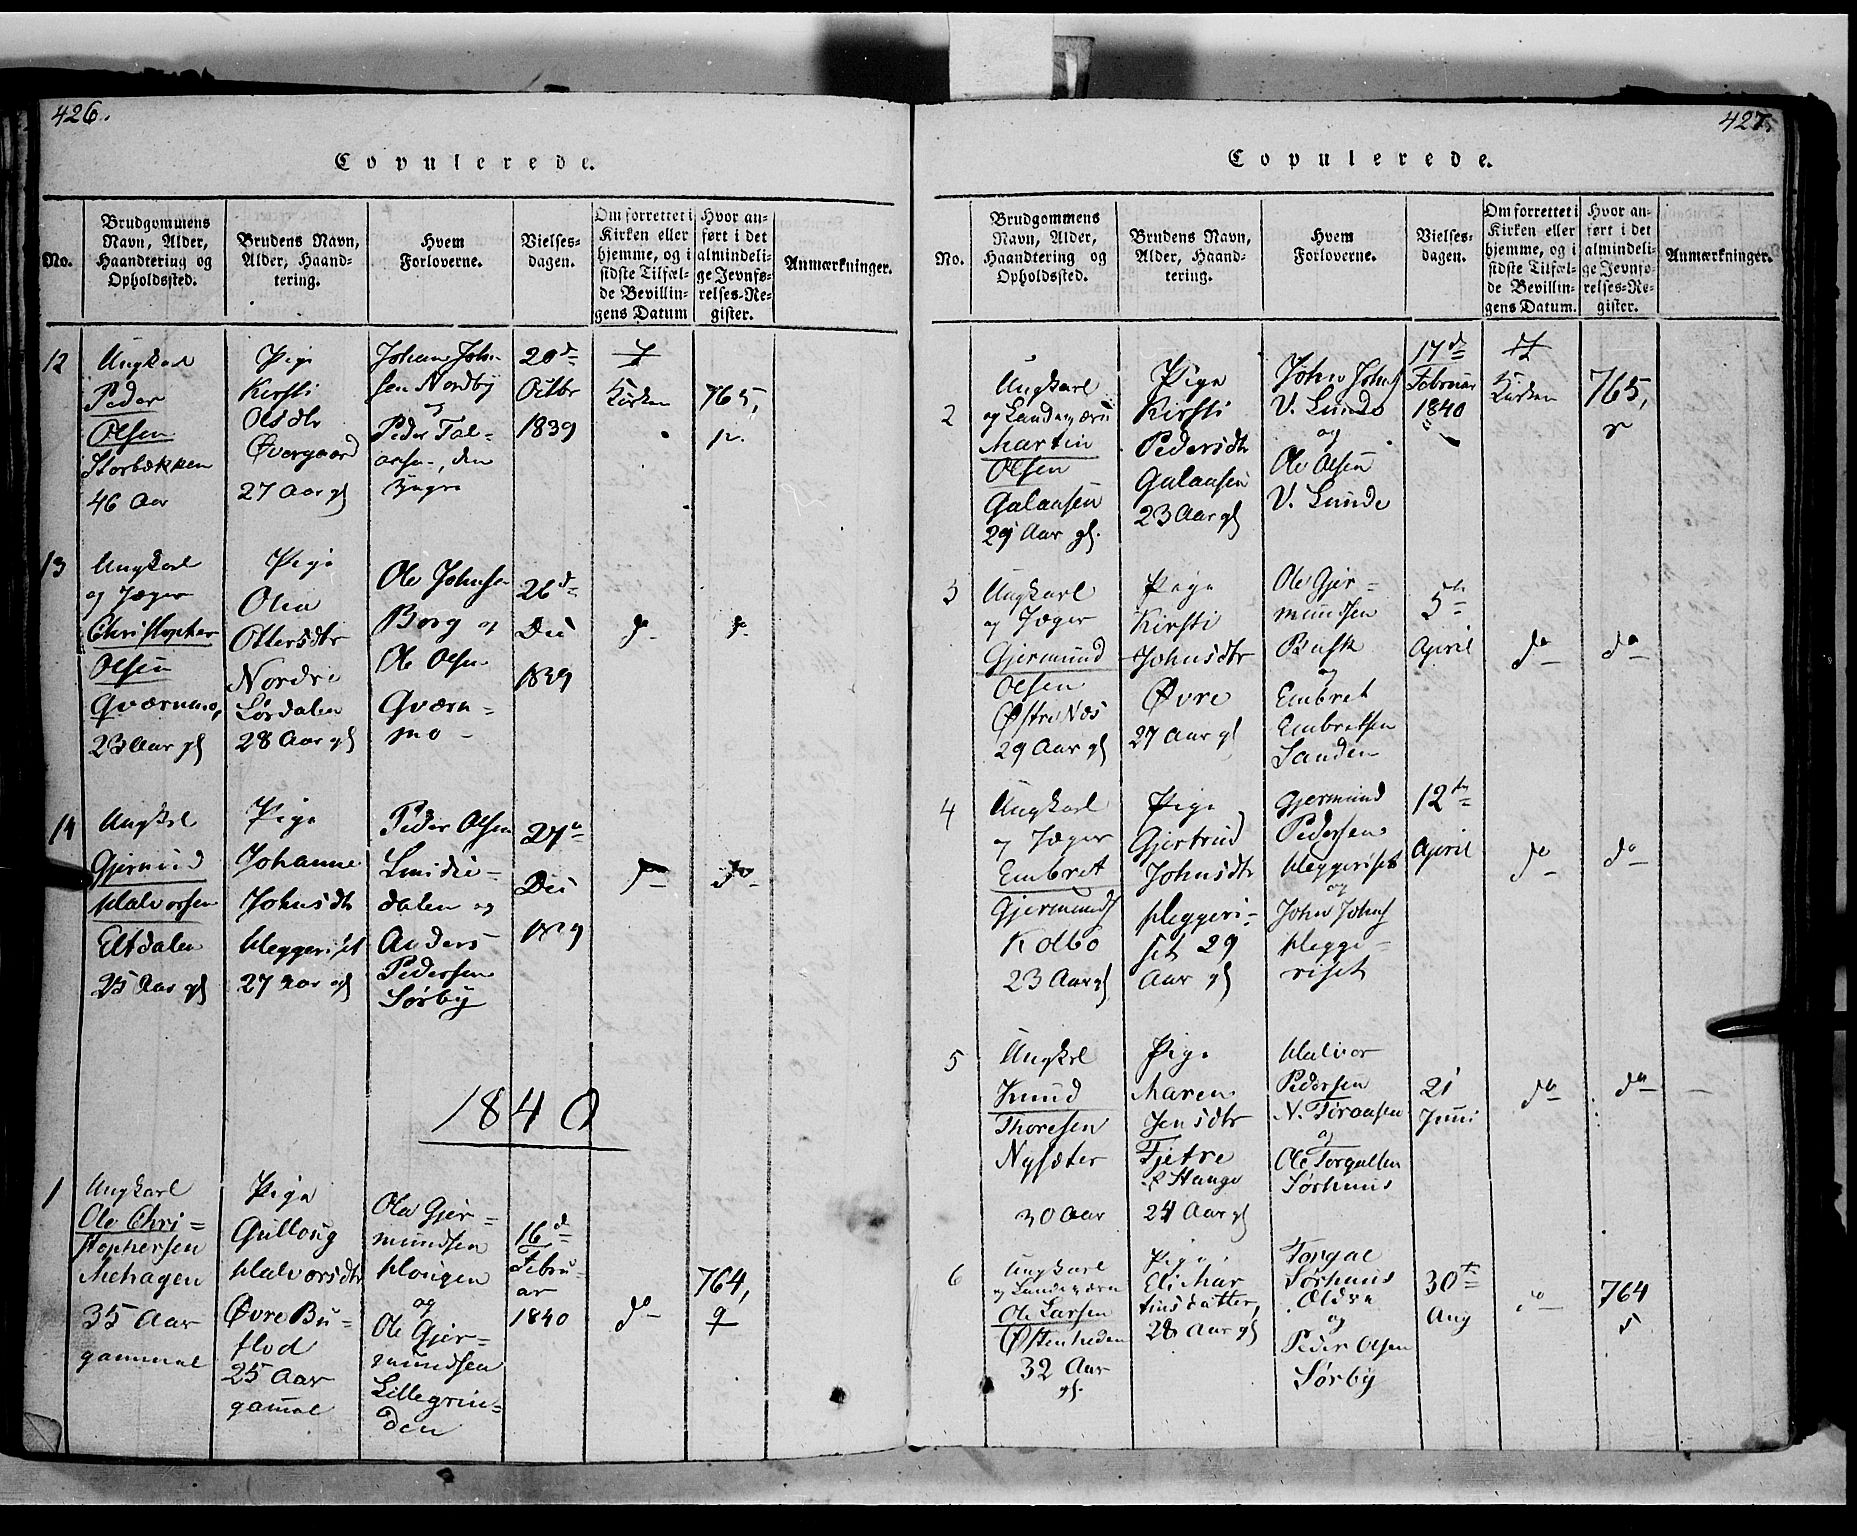 426.
Copulerede.
No.
Brudgommens
Navn, Alder,
Haandtering og
Opholdssted.
Brudens Navn,
Alder, Haand-
tering.
Hvem
Forloverne.
Vielses-
dagen.
Om forrettet i
Kirken eller
hjemme, og i
sidste Tilfæl-
de Bevillin-
gens Datum
Hvor an-
ført i det
almindeli-
ge Jevnfø-
relses-Re-
gister.
Anmærkninger.
12
Ungkarl
Peder
Olsen
Storbækken
46 Aar
Pige
Kirsti
Olsdtr
Øvergaard
27 Aar gl
Johan John-
sen Nordby
og
Peder Tal-
arsen, den
yngre
20d
Octbr
1839
I
Kirken
765,
12.
13
Ungkarl
og Jæger
Christopher
Olsen
Qværnmo,
23 Aar gl
Pige
Olea
Ottersdtr
Nordre
Sørdalen
28 Aar gl
Ole Johnsen
Borg og
Ole Olsen
Qværn-
mo
26d
Dec
1839
do
do
14
Ungkrl
Gjermund
Halvorsen
Eltdalen
25 Aar gl
Pige
Johanne
Johnsdtr
Heggeriset
27 Aar gl
Peder Olsen
Lundie-
dalen og
Anders
Pedersen
Sørby
27n
Dec
1839
do
do
1840
1
Ungkarl
Ole Chri=
stophersen
Nehagen
35 Aar
gammel
Pige
Gullaug
Halvorsdtr
Øvre Bu-
flod
25 Aar
gammel
Ole Gjer=
mundsen
Hougen
og
Ole Gjer-
mundsen
Lillegrin-
den
16d
Febru-
ar
1840
do
764,
9
427.
Copulerede.
No.
Brudgommens
Navn, Alder,
Haandtering og
Opholdssted.
Brudens Navn,
Alder, Haand-
tering.
Hvem
Forloverne.
Vielses-
dagen.
Om forrettet i
Kirken eller
hjemme, og i
sidste Tilfæl-
de Bevillin-
gens Datum.
Hvor an-
ført i det
almindeli-
ge Jevnfø-
relses-Re-
gister.
Anmærkninger.
2
Ungkarl
og Landeværn
Martin
Olsen
Galaasen
29 Aar gl.
Pige
Kirsti
Pedersdtr
Galaasen
23 Aar gl
John Johns
V. Lunde
og
Ole Olsen
V. Lunde
17de
Februar
1840
I
Kirken
765,
3
Ungkarl
og Jæger
Gjermund
Olsen
Østre Næs
29 Aar gl
Pige
Kirsti
Johnsdtr
Øvre
27 Aar gl
Ole Gjer-
mundsen
Busk
og
Embret
Embretsen
Sanden
5te
April
do
do
4
Ungkarl
og Jæger
Embret
Gjermunds
Kolbo
23 Aar gl
Pige
Gjertrud
Johnsdtr
Heggeri-
set 29
Aar gl
Gjermund
Pedersen
Heggeriset
og
John Johns
Hegge-
riset
12te
April
do
do
5
Ungkrl
Knud
Thoresen
Nysæter
30 Aar
Pige
Maren
Jensdtr
Fjetre
Stange
24 Aar gl
Halvor
Pedersen
N. Toraasen
og
Ole Torgalsen
Sørhuus
21
Juni
do
do
6
Ungkarl
og Landeværn
Ole Larsen
Østenheden
32 Aar
gl.
Pige
Eli Mar
tinsdatter,
28 Aar gl
Torgal
Sørhuus
Oldre
og
Peder Olsen
Sørby
30te
Aug
do
764
5